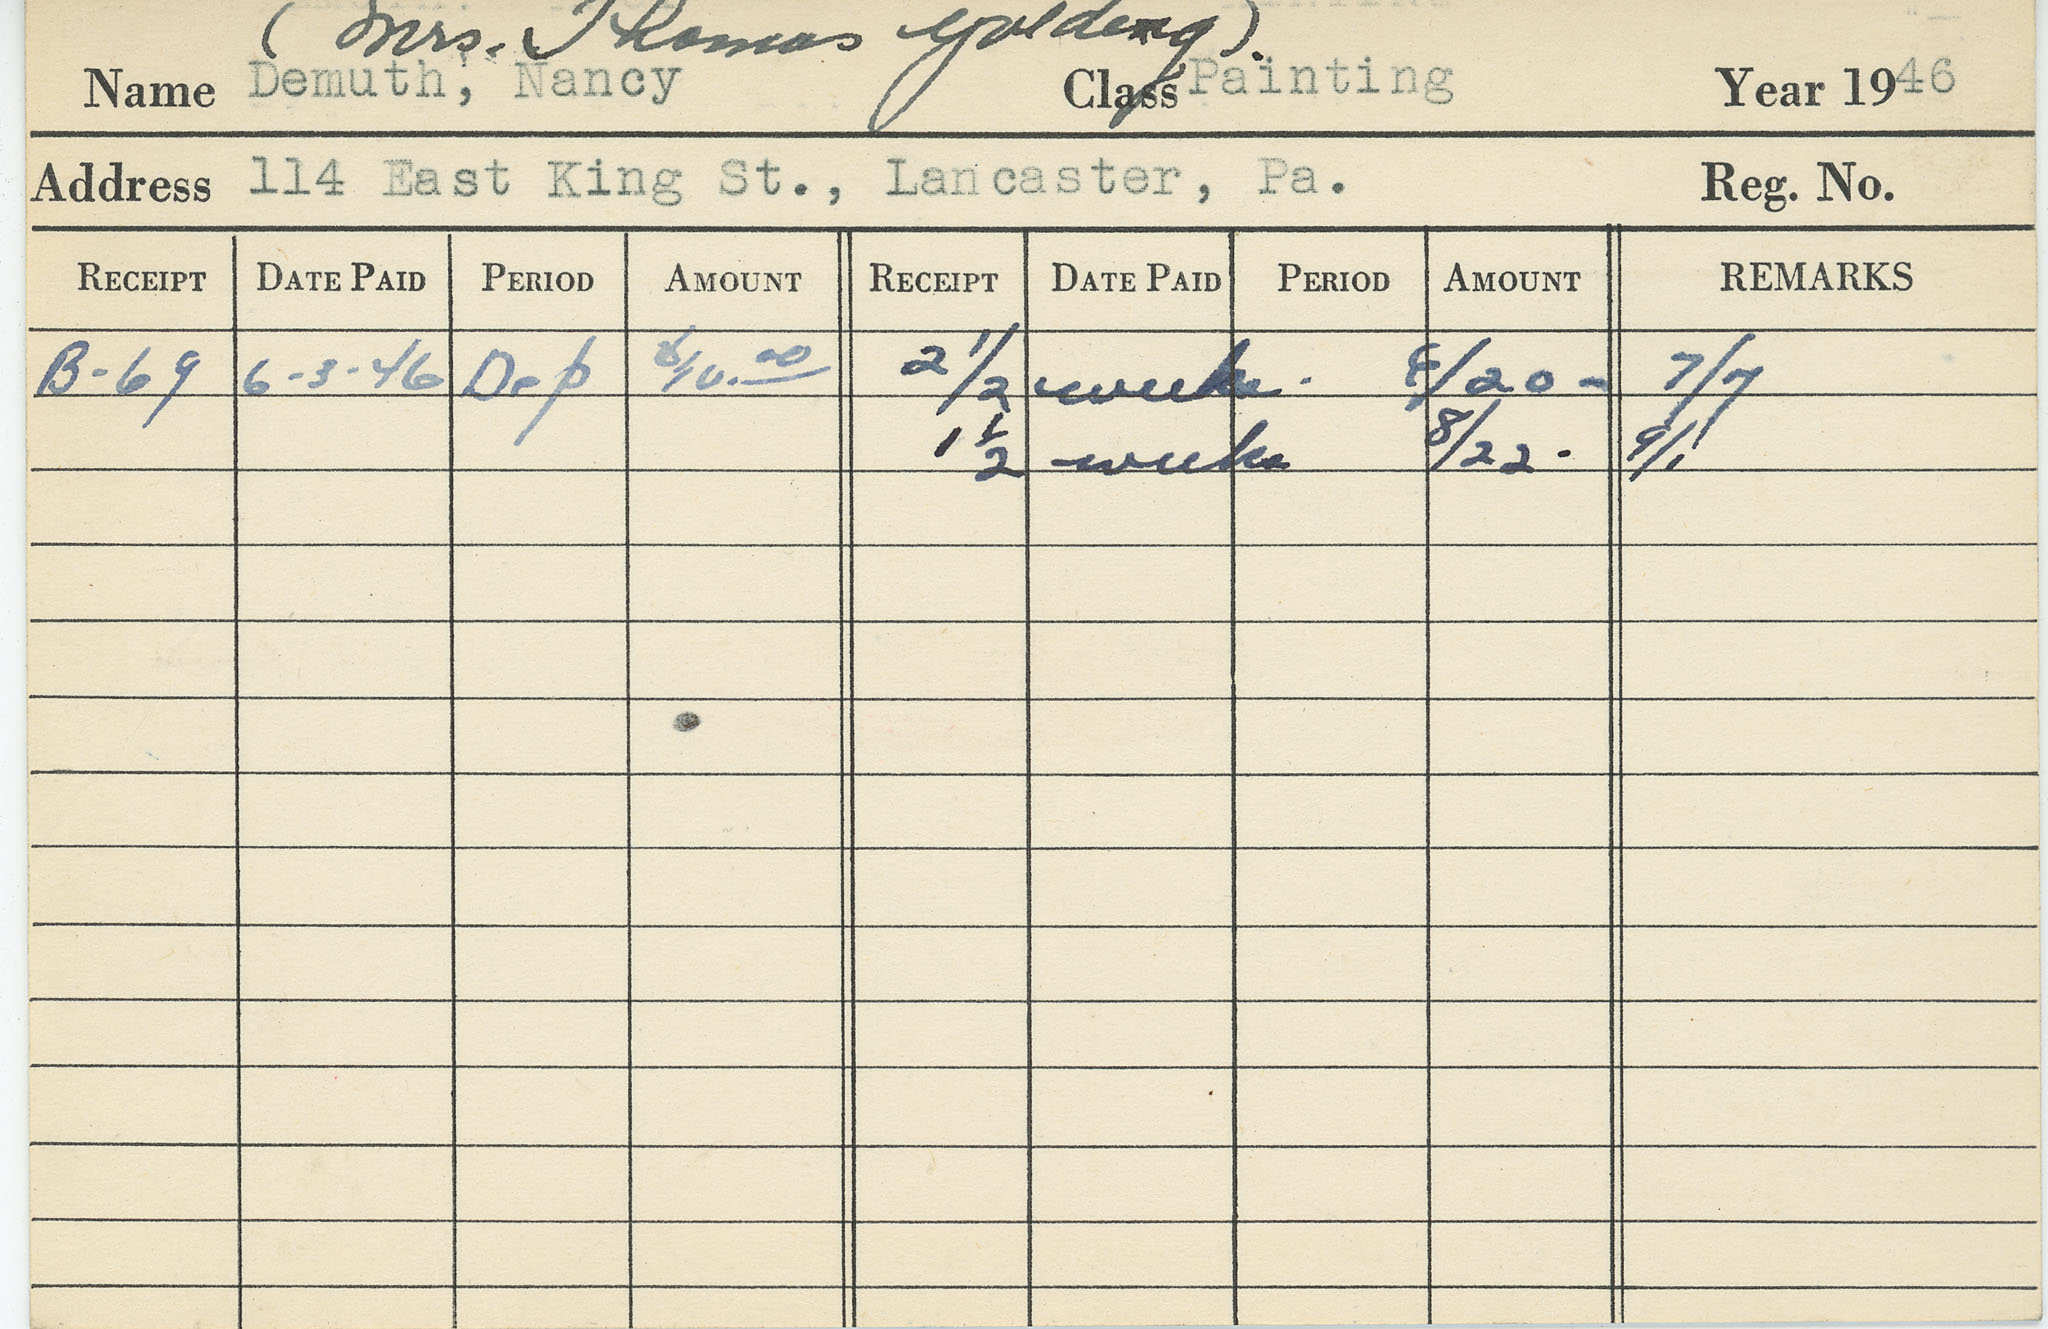 (Mrs. Thomas Golding).
Name Demuth, Nancy Class Painting Year 1946
Address 114 East King St., Lancaster, Pa. Reg. No.
RECEIPT DATE PAID PERIOD AMOUNT RECEIPT DATE PAID PERIOD AMOUNT REMARKS
B-69 6-3-46 Dep $10.00 2 1/2 weeks. /20 - 7/7
1 1/2 weeks 8/22 - 9/1